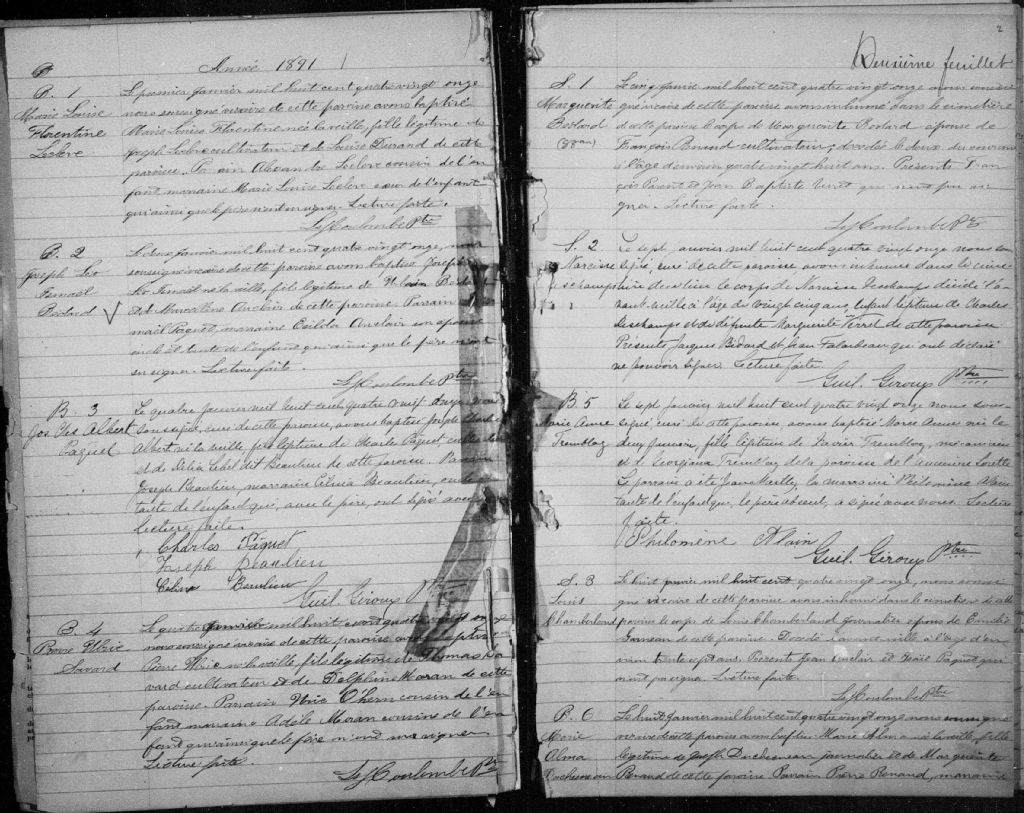 Année 1891
B. 1
Marie Louise
Florentine
Leclerc
Le premier Janvier mil huit cent quatre vingt onze
nous soussigné vicaire de cette paroisse avons baptisé
Marie Louise Florentine née la veille, fille légitime de
Joseph Leclerc cultivateur et de Louise Durand de cette
paroisse. Parrain Alexandre Leclerc cousin de l'en
fant, marraine Marie Louise Leclerc sœur de l'enfant
qui ainsi que le père n'ont su signer. Lecture faite.
Coulombe Ptre
B. 2
Joseph Leo
Ismael
Bedard
Le deux Janvier mil huit cent quatre vingt onze, nous
soussigné vicaire de cette paroisse avons baptisé Joseph
Leo Ismaël né la veille, fils légitime de Bedard
et de Anclair de cette paroisse Parrain
Paquet, marraine Anclair son épouse
oncle et tante de l'enfant qui ainsi que le père n'ont
su signer. Lecture faite.
Coulombe Ptre
B. 3
Jos Chs Albert
Paquet
Le quatre Janvier mil huit cent quatre vingt onze nous
soussigné, curé de cette paroisse, avons baptisé Joseph Charles
Albert né la veille, fils légitime de Charles Paquet
et de Délia Lebel dit Beaulieu de cette paroisse. Parrain
Joseph Beaulieu, marraine Célina Beaulieu, oncle et
tante de l'enfant qui, avec le père, ont signé avec
Lecture faite.
Charles Paquet
Joseph Beaulieu
Célina Beaulieu
Guil. Giroux Ptre
B. 4
Pierre Ulric
Savard
Le quatre Janvier mil huit cent quatre vingt onze
nous soussigné vicaire de cette paroisse avons baptisé
Pierre Ulric né la veille, fils légitime de Thomas Sa
vard cultivateur et de Delphine Moran de cette
paroisse. Parrain Ulric O'Hern cousin de l'en
fant marraine Adèle Moran cousine de l'en
fant qui ainsi que le père n'ont su signer
Lecture faite.
Coulombe Ptre
2
Deuxième feuillet
S. 1
Marguerite
Bedard
Le cinq Janvier mil huit cent quatre vingt onze nous soussi
gné vicaire de cette paroisse avons inhumé dans le cimetière
de cette paroisse le corps de Marguerite Bedard épouse de
François cultivateur, décédée le deux du courant
à l'âge d'environ quatre vingt huit ans. Présents Fran
çois Parent et Jean Baptiste qui n'ont pu si
gner. Lecture faite.
Coulombe Ptre
S. 2
Narcisse
Deschamps
Le sept Janvier mil huit cent quatre vingt onze nous sous
signé, curé de cette paroisse avons inhumé dans le cime
tière de ce lieu le corps de Narcisse Deschamps décédé l'a
vant-veille à l'âge de vingt cinq ans, enfant légitime de Charles
Deschamps et de défunte Marguerite Verret de cette paroisse
Présents Jacques Bédard et Jean Falardeau qui ont déclaré
ne pouvoir signer. Lecture faite.
Guil. Giroux Ptre
B. 5
Marie Anne
Tremblay
Le sept Janvier mil huit cent quatre vingt onze nous sous
signé, curé de cette paroisse, avons baptisé Marie Anne née le
deux Janvier, fille légitime de Xavier Tremblay,
et de Georgiana Tremblay de la paroisse de l'Ancienne Lorette
Le parrain a été la marraine Philomène Alain
tante de l'enfant qui, le père absent, a signé avec nous. Lecture
faite.
Philomène Alain
Guil. Giroux Ptre
S. 3
Louis
Chamberland
Le huit Janvier mil huit cent quatre vingt onze, nous soussi
gné vicaire de cette paroisse avons inhumé dans le cimetière de cette
paroisse le corps de Louis Chamberland journalier époux de
de cette paroisse. Décédé l'avant veille à l'âge d'en
viron trente sept ans. Présents Jean et Noël Paquet qui
n'ont pu signer. Lecture faite.
Coulombe Ptre
B. 6
Marie
Alma
Duchesneau
Le huit Janvier mil huit cent quatre vingt onze nous soussigné
vicaire de cette paroisse avons baptisé Marie Alma née la veille, fille
légitime de Joseph Duchesneau journalier et de Marguerite
Renaud de cette paroisse Parrain Pierre Renaud, marraine